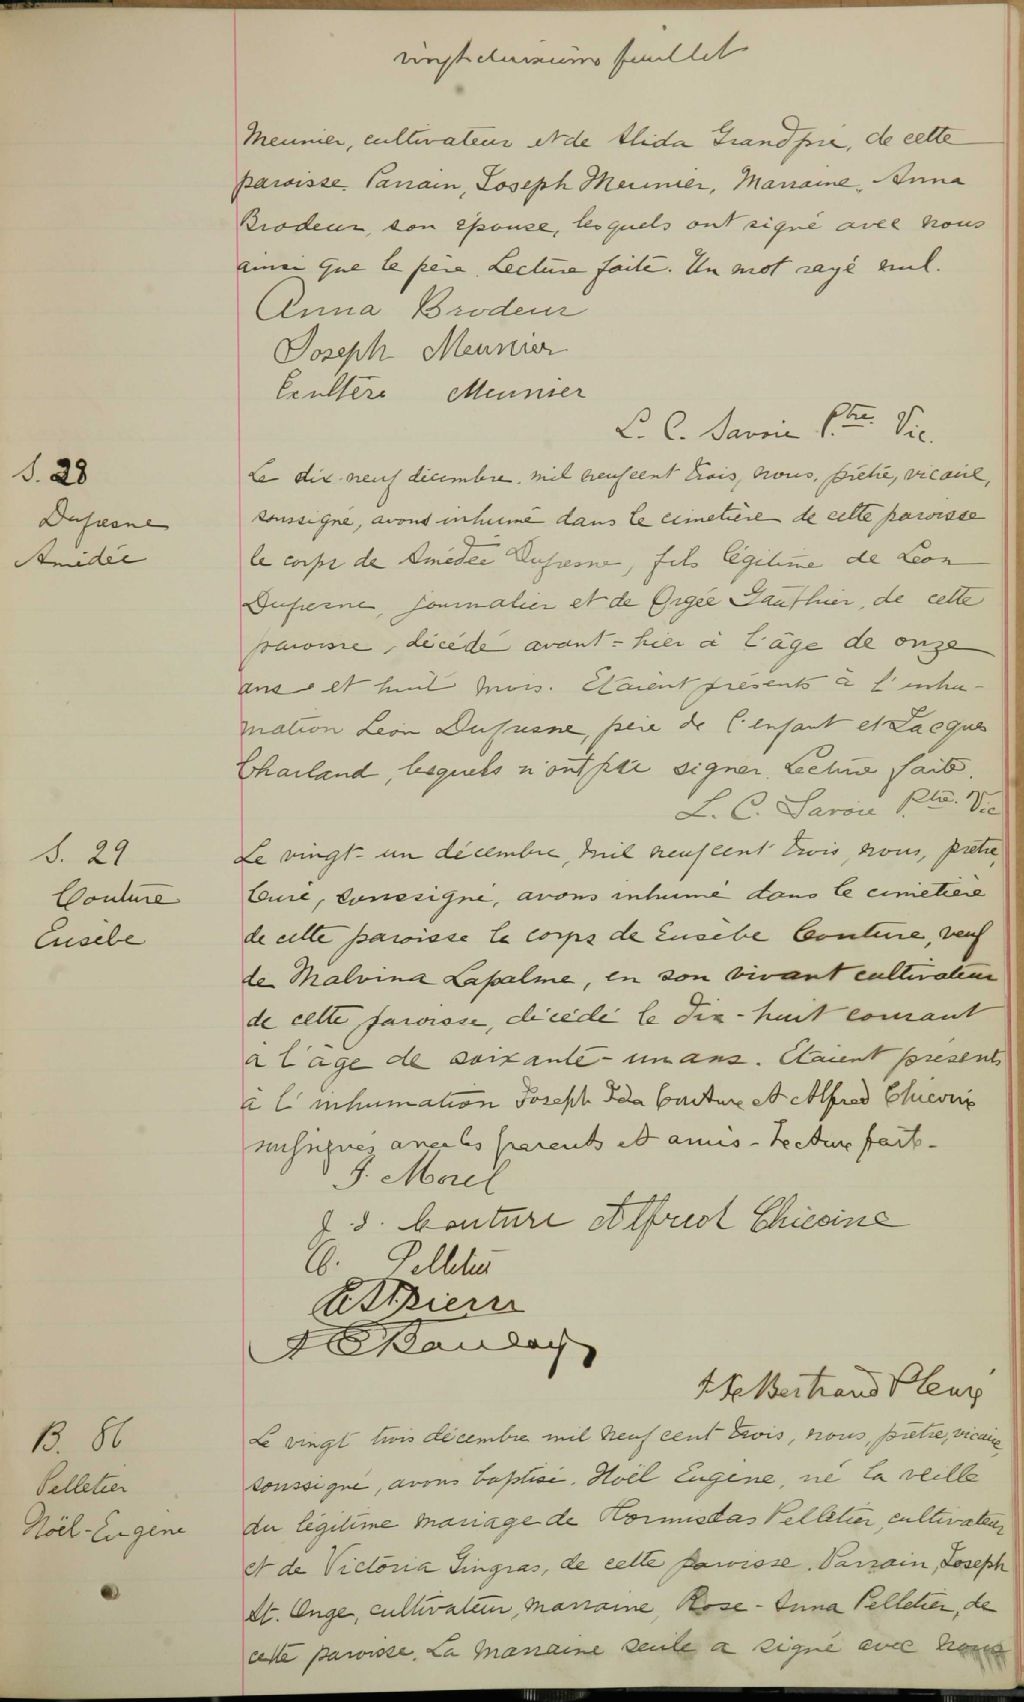 vingt deuxième feuillet
Meunier, cultivateur et de Alida Grandpré, de cette
paroisse. Parrain, Joseph Meunier, Marraine, Anna
Brodeur, son épouse, lesquels ont signé avec nous
ainsi que le père. Lecture faite. Un mot rayé nul.
Anna Brodeur
Joseph Meunier
Meunier
L. C. Savoie Ptre. Vic.
S. 28
Dufresne
Amédée
Le dix-neuf décembre, mil neuf cent trois, nous, prêtre, vicaire,
soussigné, avons inhumé dans le cimetière de cette paroisse
le corps de Amédée Dufresne, fils légitime de Léon
Dufresne, journalier et de Orgée Gauthier, de cette
paroisse, décédé avant-hier à l'âge de onze
ans et huit mois. Etaient présents à l'inhu-
mation Léon Dufresne, père de l'enfant et Jacques
Charland, lesquels n'ont pu signer. Lecture faite.
L. C. Savoie Ptre. Vic
S. 29
Couture
Eusèbe
Le vingt-un décembre, mil neuf cent trois, nous, prêtre,
Curé, soussigné, avons inhumé dans le cimetière
de cette paroisse le corps de Eusèbe Couture, veuf
de Malvina Lapalme, en son vivant cultivateur
de cette paroisse, décédé le dix-huit courant
à l'âge de soixante-un ans. Etaient présents
à l'inhumation Joseph Couture et Alfred Chicoine
soussignés avec les parents et amis - Lecture faite -
J. Morel
J. J. Couture Alfred Chicoine
C. Pelletier
E. St Pierre
Bertrand Ptre Curé
B. 86
Pelletier
Noël-Eugène
Le vingt trois décembre mil neuf cent trois, nous, prêtre, vicaire,
soussigné, avons baptisé, Noël Eugène, né la veille
du légitime mariage de Hormisdas Pelletier, cultivateur
et de Victoria Gingras, de cette paroisse. Parrain, Joseph
St. Onge, cultivateur, marraine, Rose-Anna Pelletier, de
cette paroisse. La marraine seule a signé avec nous